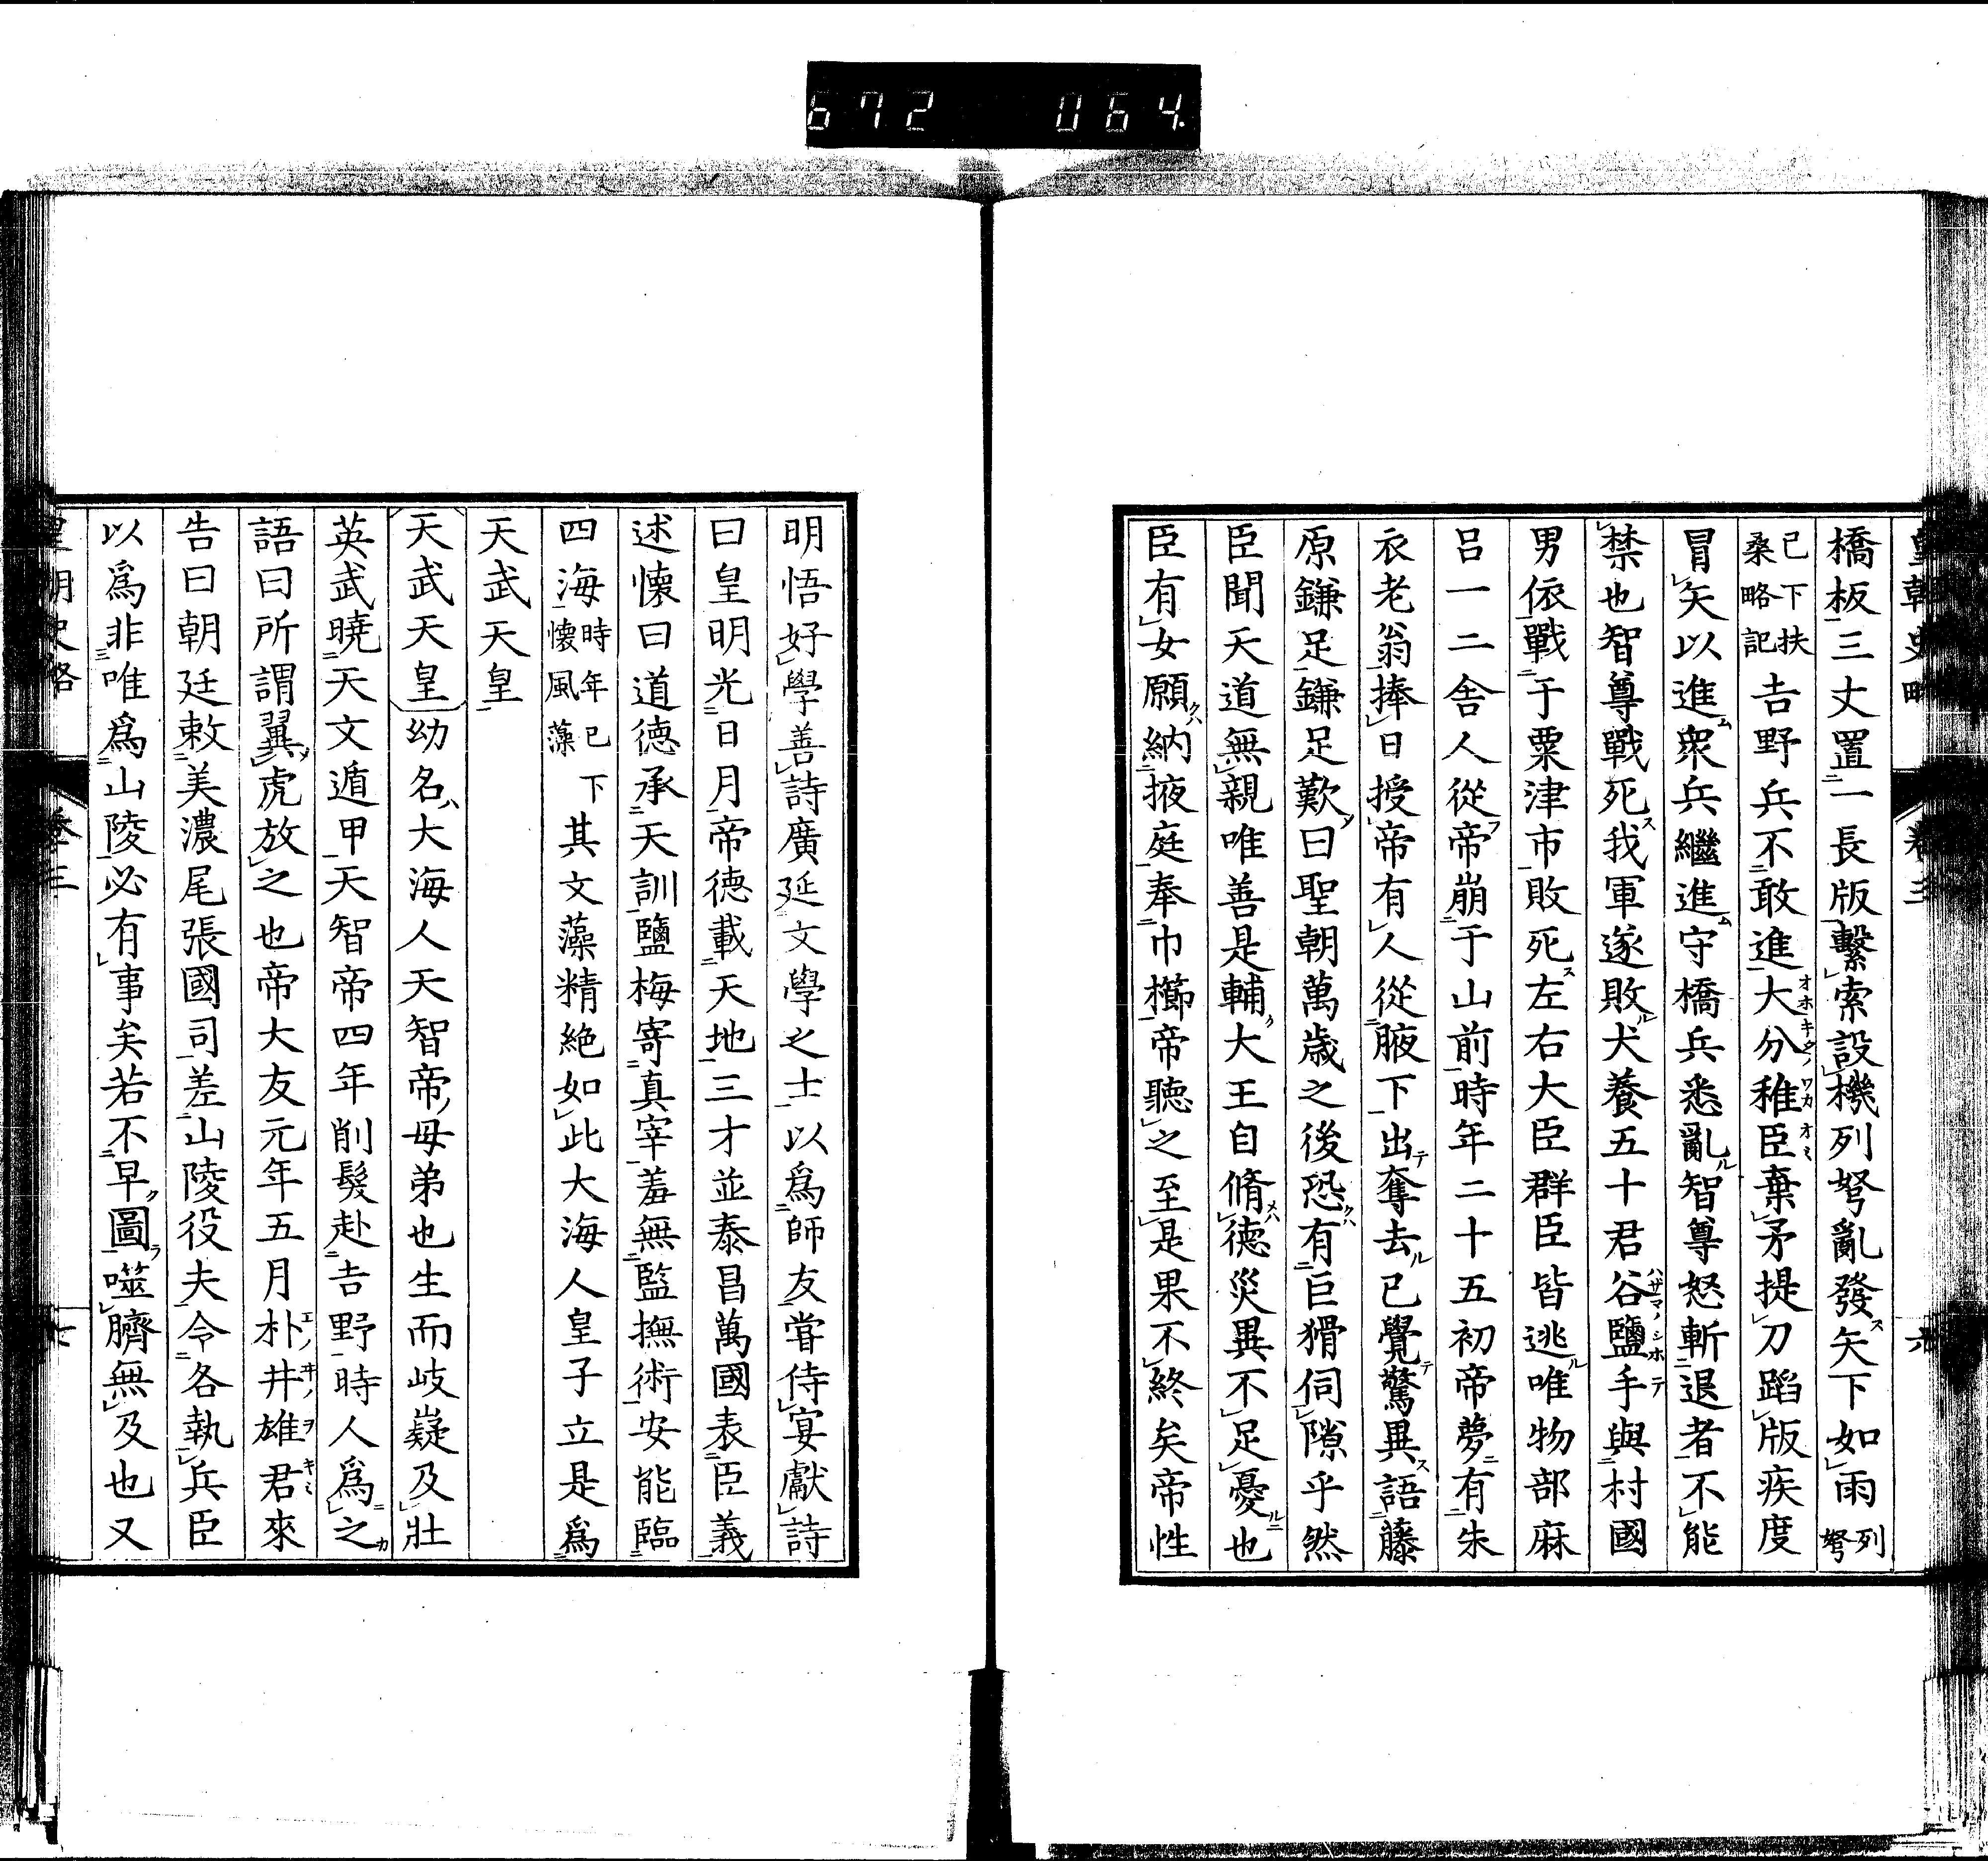 672 064
皇朝史略 卷三 六
橋板三丈置一長版繫索設機列弩亂發ス矢下如雨列弩
已下扶桑略記吉野兵不敢進大分稚臣棄矛提刀蹈版疾度
冒矢以進ム衆兵繼進ム守橋兵悉亂ル智尊怒斬退者不能
禁也智尊戰死ス我軍遂敗ル犬養五十君谷鹽手與村國
男依戰于粟津市敗死ス左右大臣群臣皆逃ル唯物部麻
呂一二舍人從フ帝崩于山前時年二十五初帝夢ニ有朱
衣老翁捧日授帝有人從腋下出テ奪去ル已覺テ驚異ス語藤
原鎌足鎌足歎メ曰聖朝萬歲之後恐クハ有巨猾伺隙乎然
臣聞天道無親唯善是輔ク大王自脩メハ德災異不足憂ルニ也
臣有女願クハ納掖庭奉巾櫛帝聽之至是果不終矣帝性
明悟好學善詩廣延文學之士以爲師友嘗侍宴獻詩
曰皇明光日月帝德載天地三才並泰昌萬國表臣義
述懷曰道德承天訓鹽梅寄真宰羞無監撫術安能臨
四海時年已下懷風藻其文藻精絕如此大海人皇子立是爲
天武天皇
天武天皇幼名ハ大海人天智帝ノ母弟也生而岐嶷及壯
英武曉天文遁甲天智帝四年削髮赴吉野時人爲之
語曰所謂翼虎放之也帝大友元年五月朴井雄君來
告曰朝廷敕美濃尾張國司差山陵役夫令各執兵臣
以爲非唯爲山陵必有事矣若不早ク圖ラ噬臍無及也又
皇朝史略 卷三 七